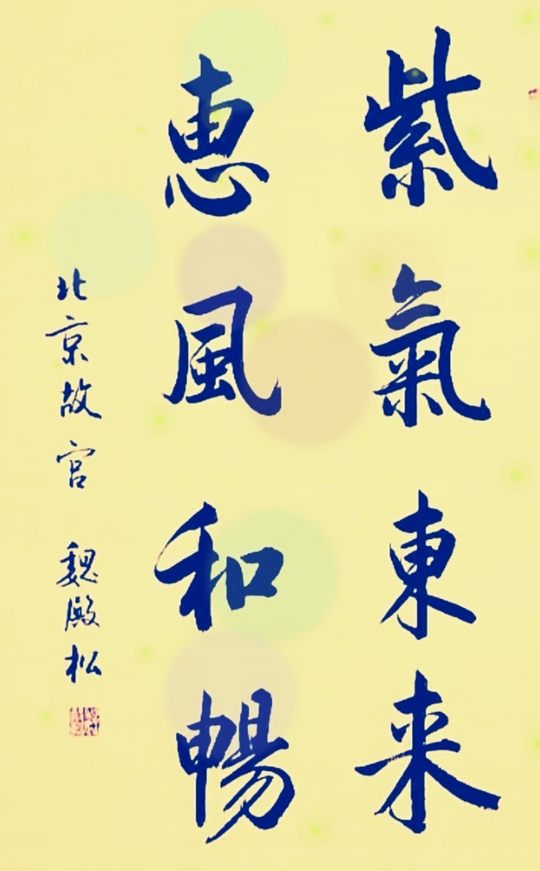 紫氣東来
恵風和暢
北京故宮 魏殿松